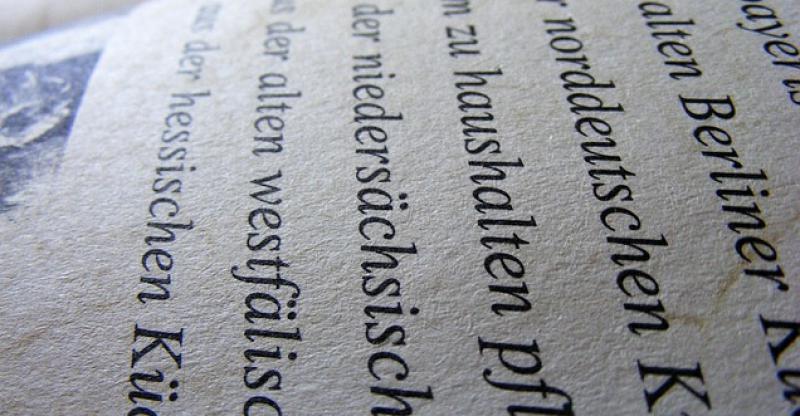 bayeris
alten Berliner Kü
r norddeutschen K
m zu haushalten pfl
der niedersächsisch
s der alten westfälisc
aus der hessischen Küc